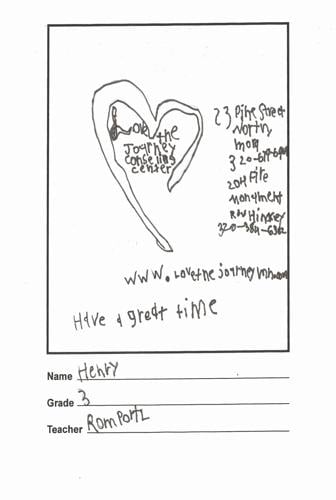 Love the
Journey
Conseling
center
23 Pine Street
North
mora
320-679-
204 Fire
monument
Rd Hinckey
320-384-
www.Lovethejourneymn.com
Have a great time
Name Henry
Grade 3
Teacher Romportl